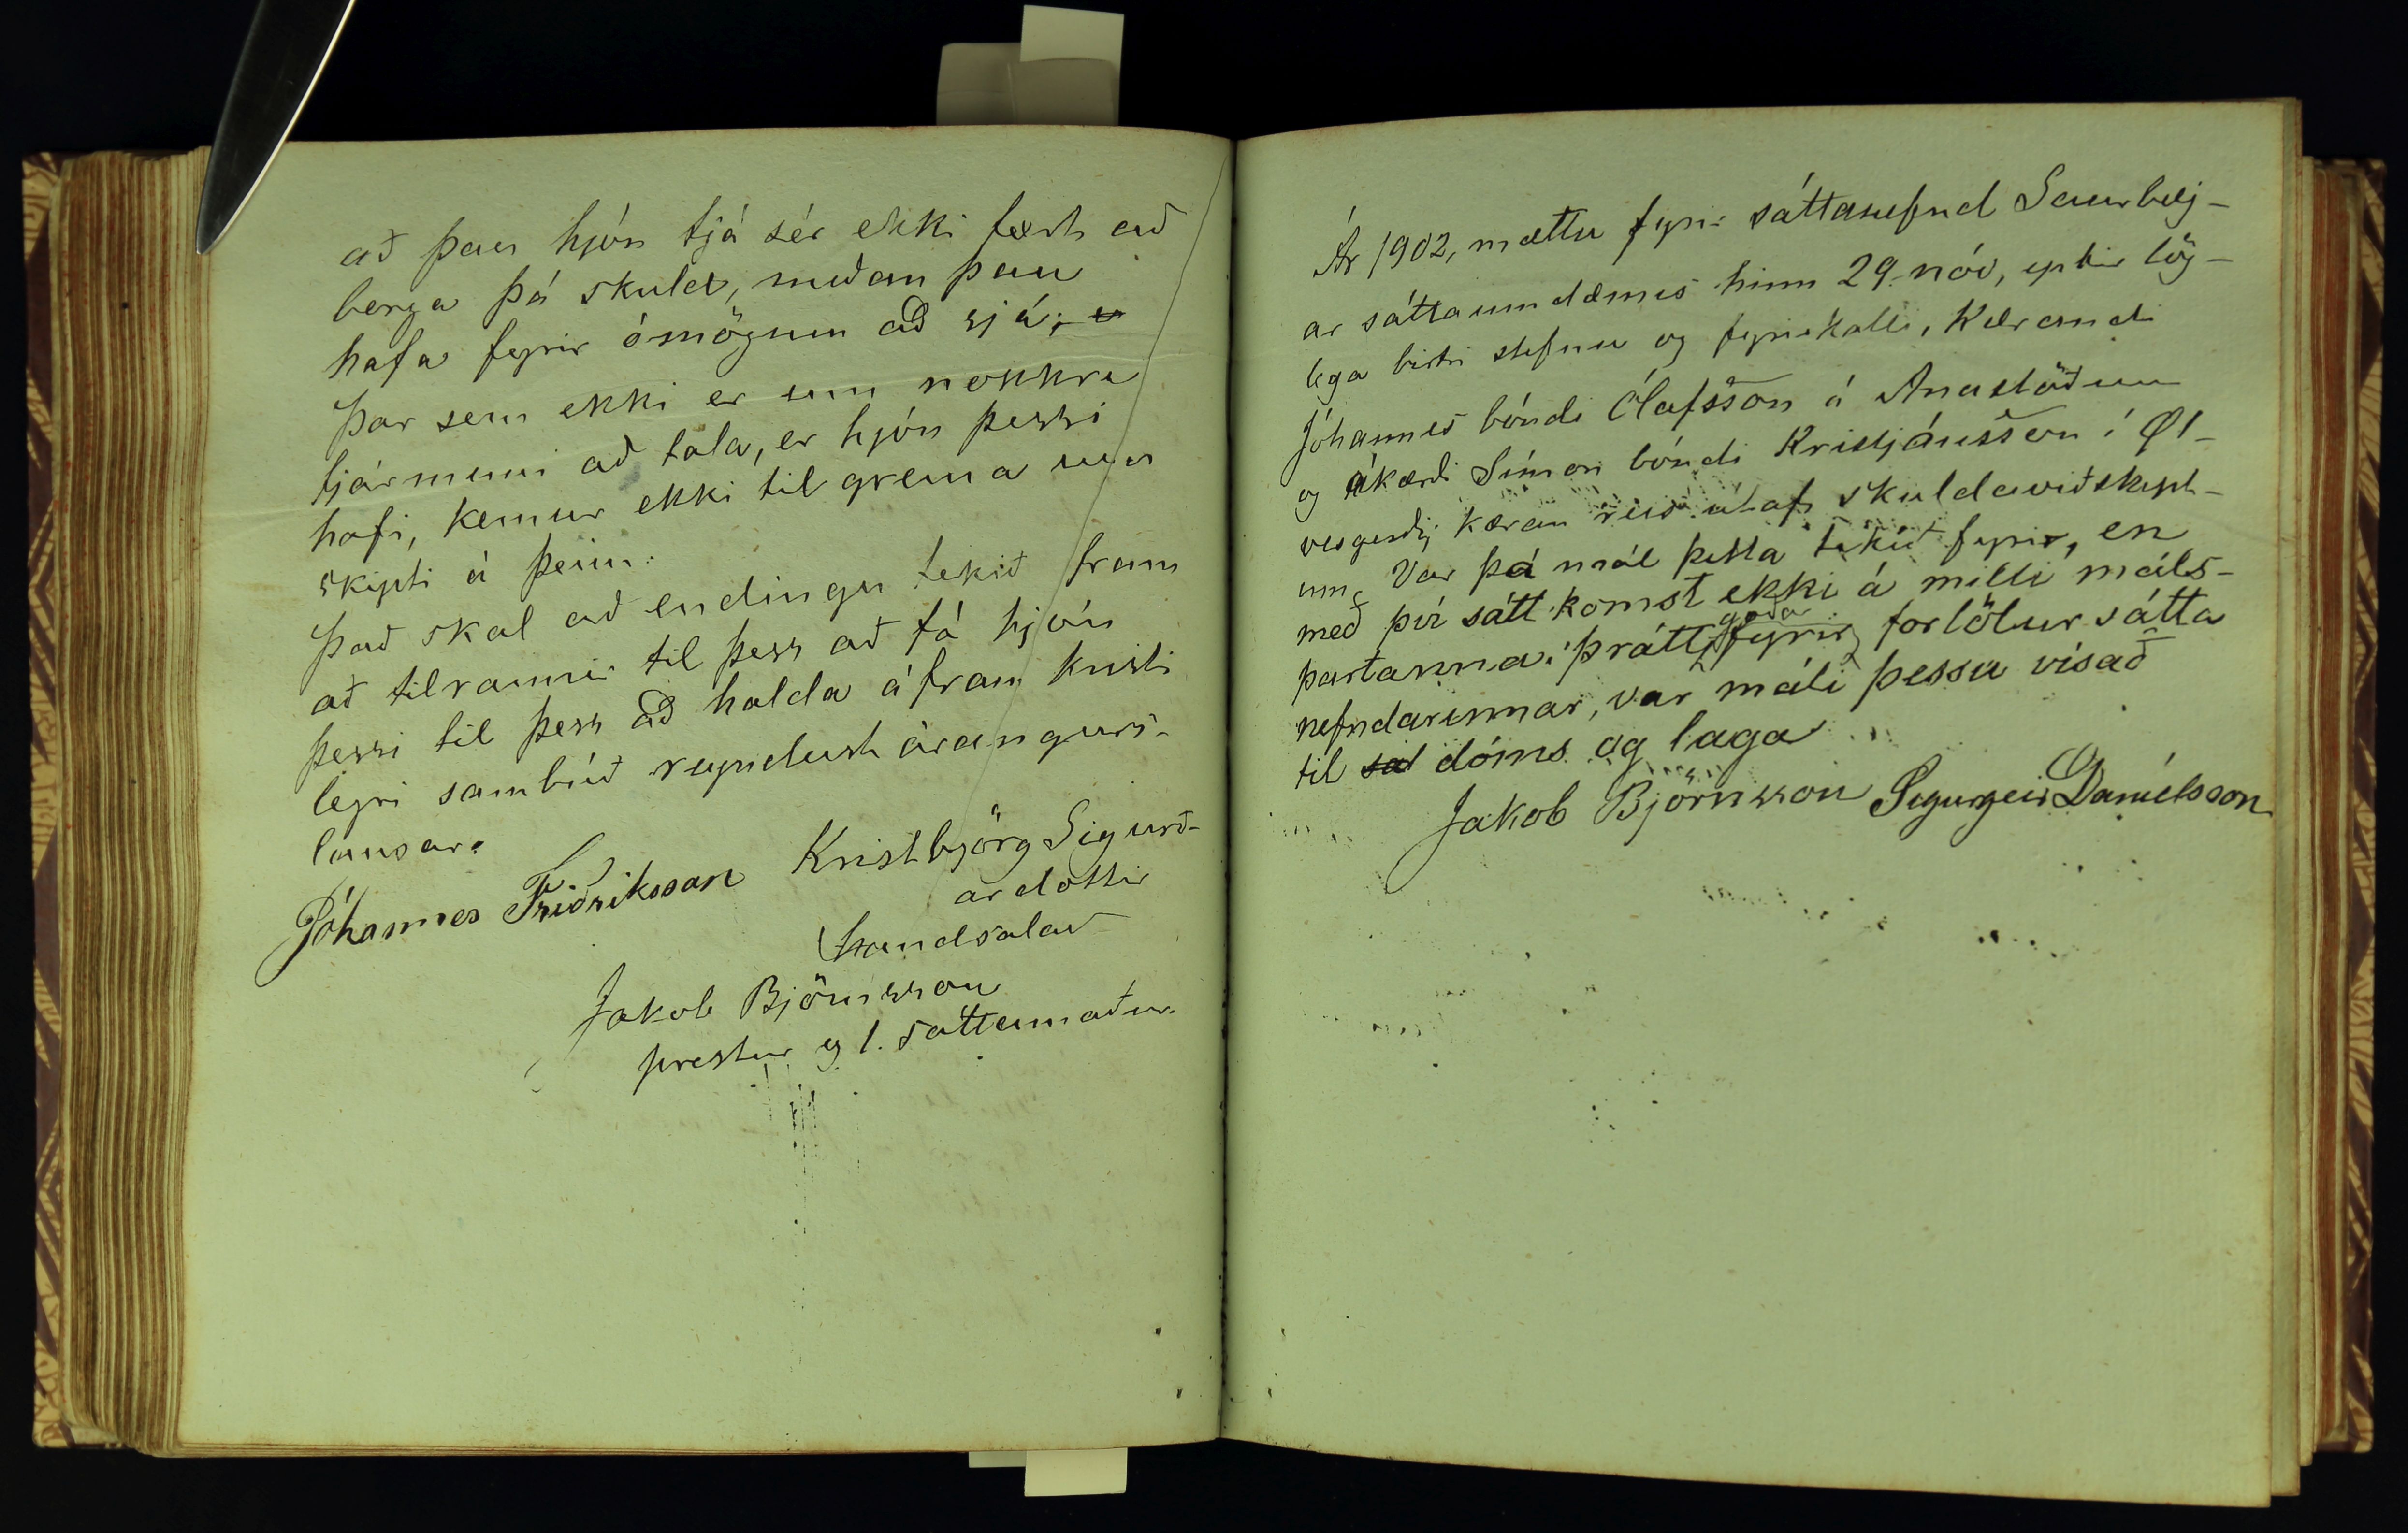 að þau hjón tjá sér ekki fært að
borga þá skuld, meðan þau
hafa fyrir ómögum að sjá;
Þar sem ekki er um nokkra
fjármuni að tala, er hjón þessi
hafi, kemur ekki til greina um
skipti á þeim.
Það skal að endingu tekið fram
að tilraunir til þess að fá hjón
þessi til þess að halda áfram kristi
legri sambúð reyndust árangurs-
lausar.
Jóhannes Friðriksson Kristbjörg Sigurð-
ardóttir
handsalað
Jakob Björnsson
prestur og 1. sáttamaður.
Ár 1902, mættu fyrir sáttanefnd Saurbæj-
ar sáttaumdæmis hinn 29. nóv, eptir lög-
lega birtri stefnu og fyrirkalli, Kærandi
Jóhannes bóndi Ólafsson á Anastöðum
og ákærði Símon bóndi Kristjánsson í Öl-
vesgerði; kæran reis út af skuldaviðskipt-
um. Var þá mál þetta tekið fyrir, en
með því sátt komst ekki á milli máls-
partanna, þrátt fyrir góðar fortölur sátta
nefndarinnar, var máli þessu vísað
til dóms og laga
Jakob Björnsson Sigurgeir Daníelsson